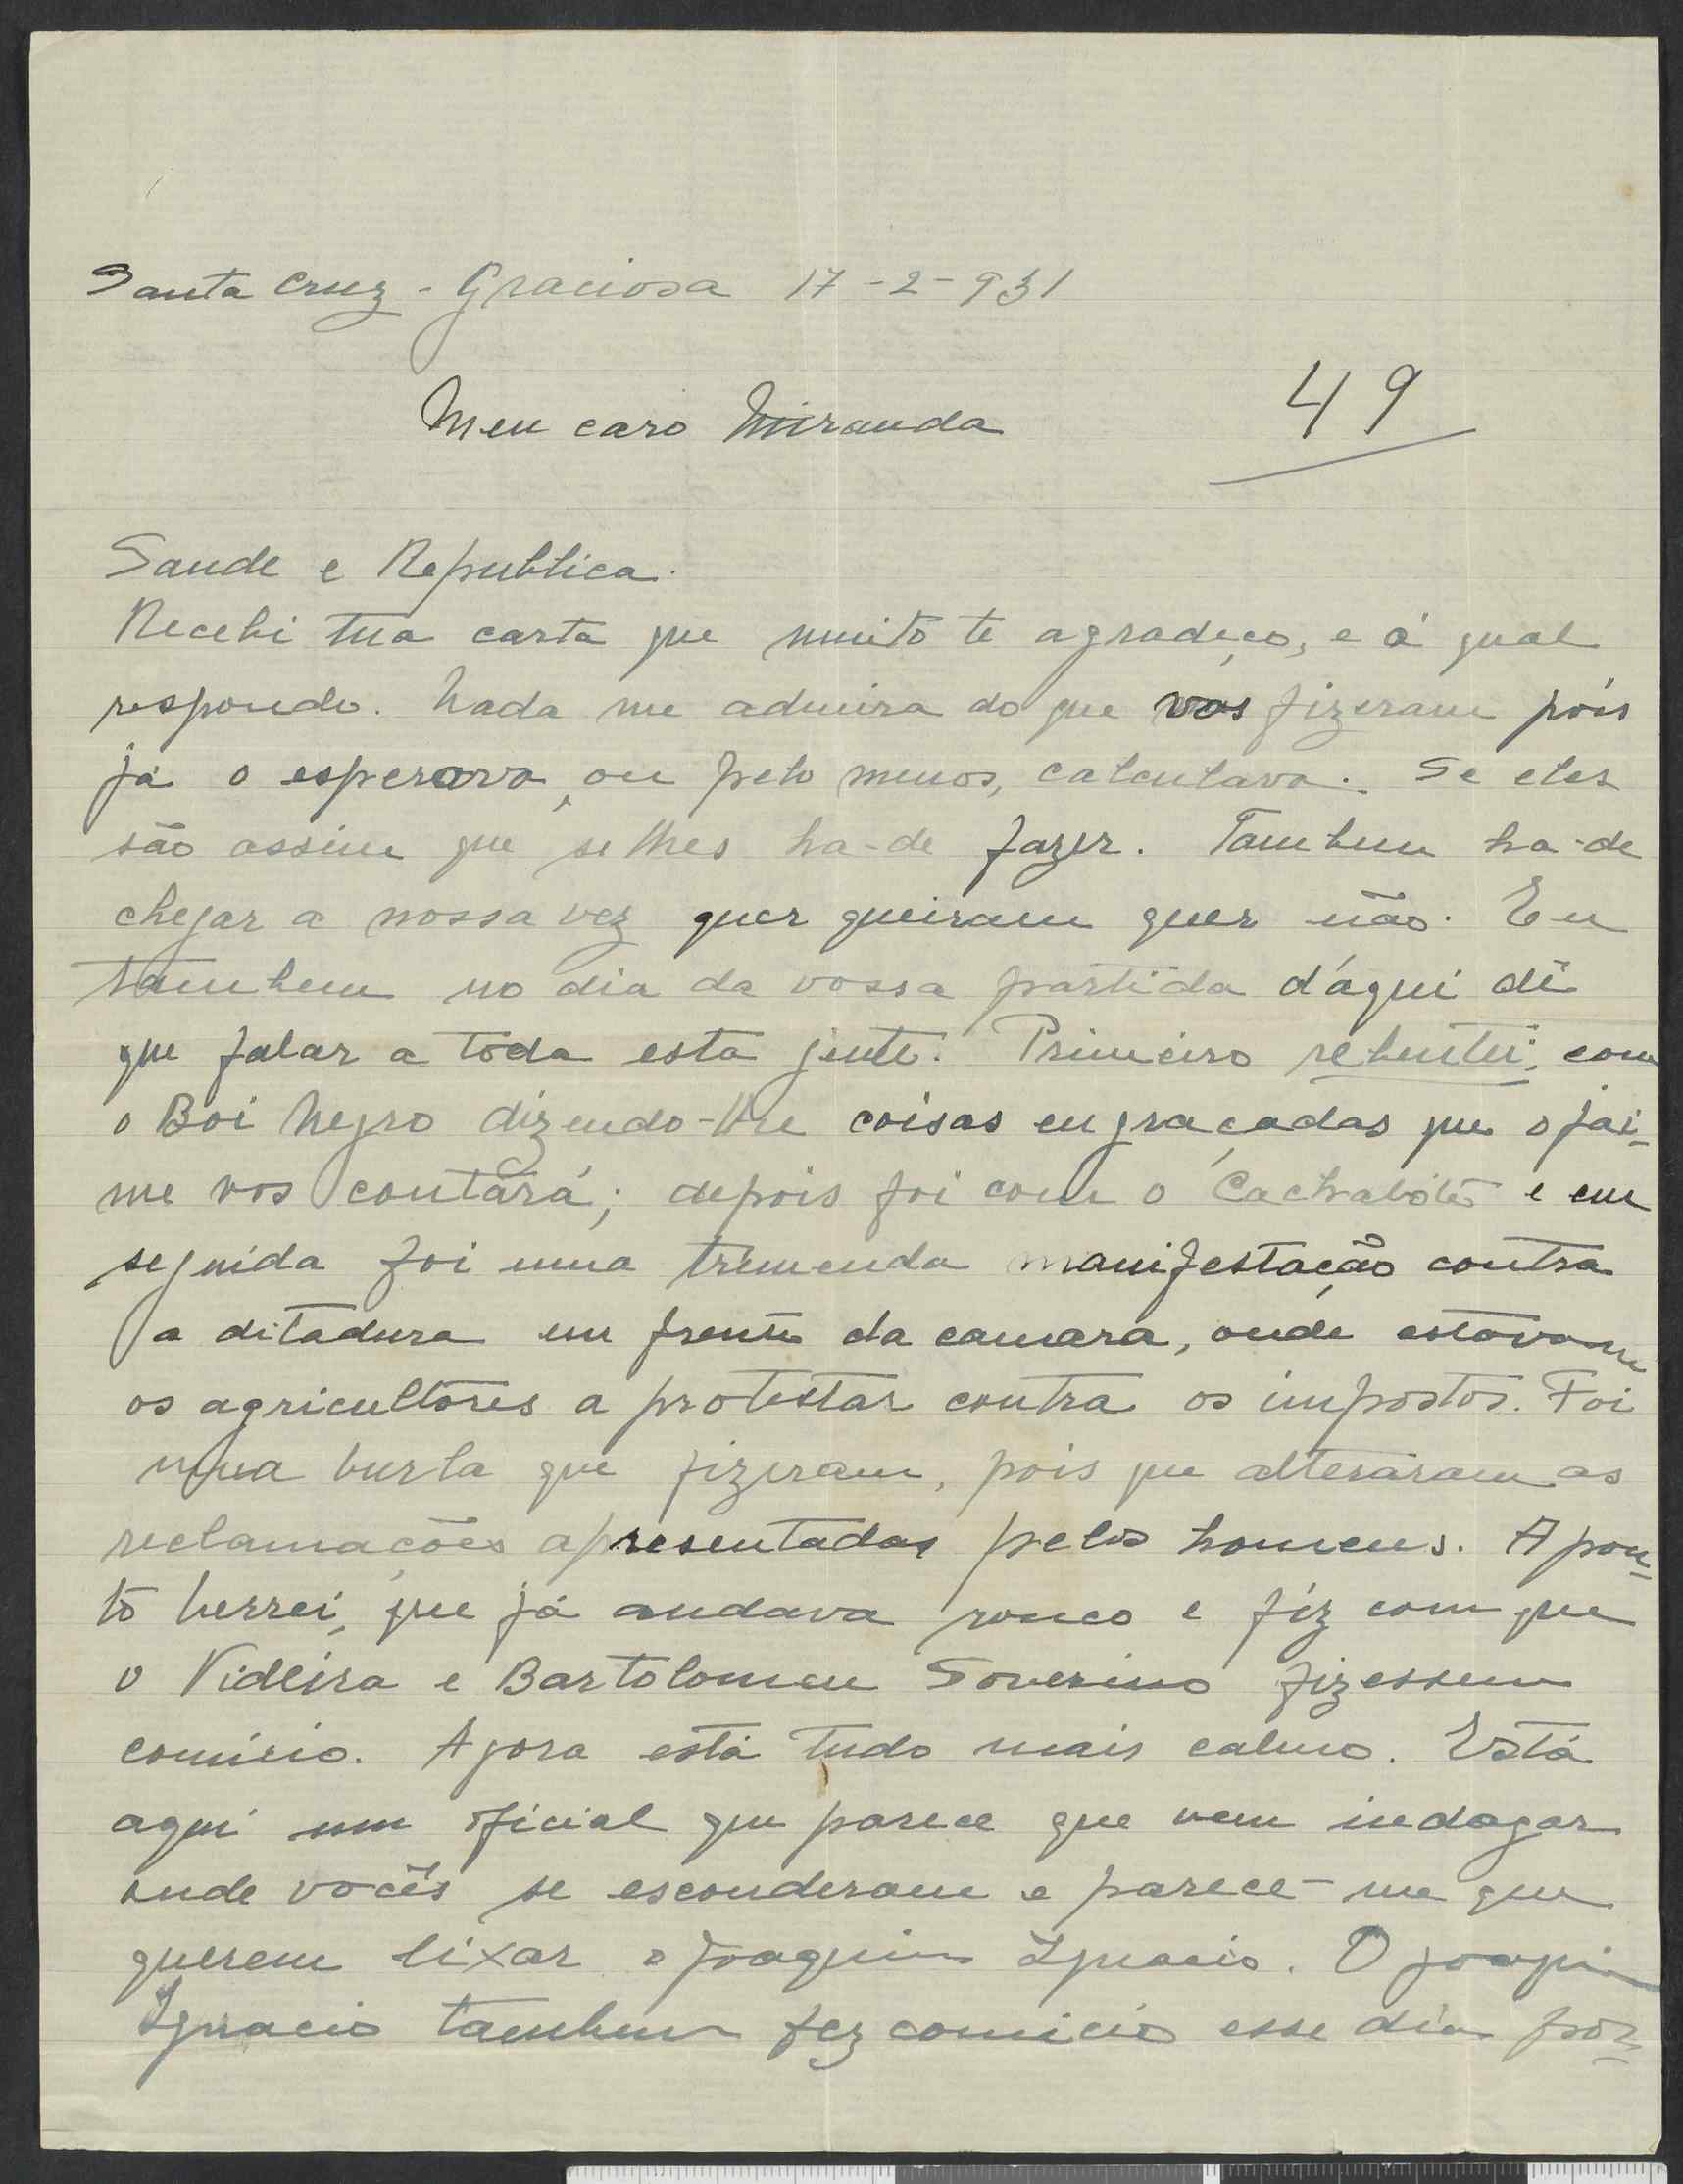 Santa Cruz - Graciosa 17-2-931
Meu caro Miranda
49
Saude e Republica.
Recebi tua carta que muito te agradeço, e á qual
respondo. Nada me admira do que vos fizeram pois
já o esperava, ou pelo menos, calculava. Se eles
são assim que se lhes ha-de fazer. Tambem ha-de
chegar a nossa vez quer queiram quer não. Eu
tambem no dia da vossa partida d'aqui dei
que falar a toda esta gente. Primeiro rebentei, com
o Boi Negro dizendo-lhe coisas engraçadas que o Jai-
me vos contará; depois foi com o e em
seguida foi uma tremenda manifestação contra
a ditadura em frente da camara, onde estavam
os agricultores a protestar contra os impostos. Foi
uma burla que fizeram, pois que alteraram as
reclamações apresentadas pelos homens. A pon-
to berrei, que já andava rouco e fiz com que
o Videira e Bartolomeu Soverino fizessem
comicio. Agora está tudo mais calmo. Está
aqui um oficial que parece que vem indagar
onde vocês se esconderam e parece-me que
querem lixar o Joaquim Ignacio. O Joaquim
Ignacio tambem fez comicio esse dia por-